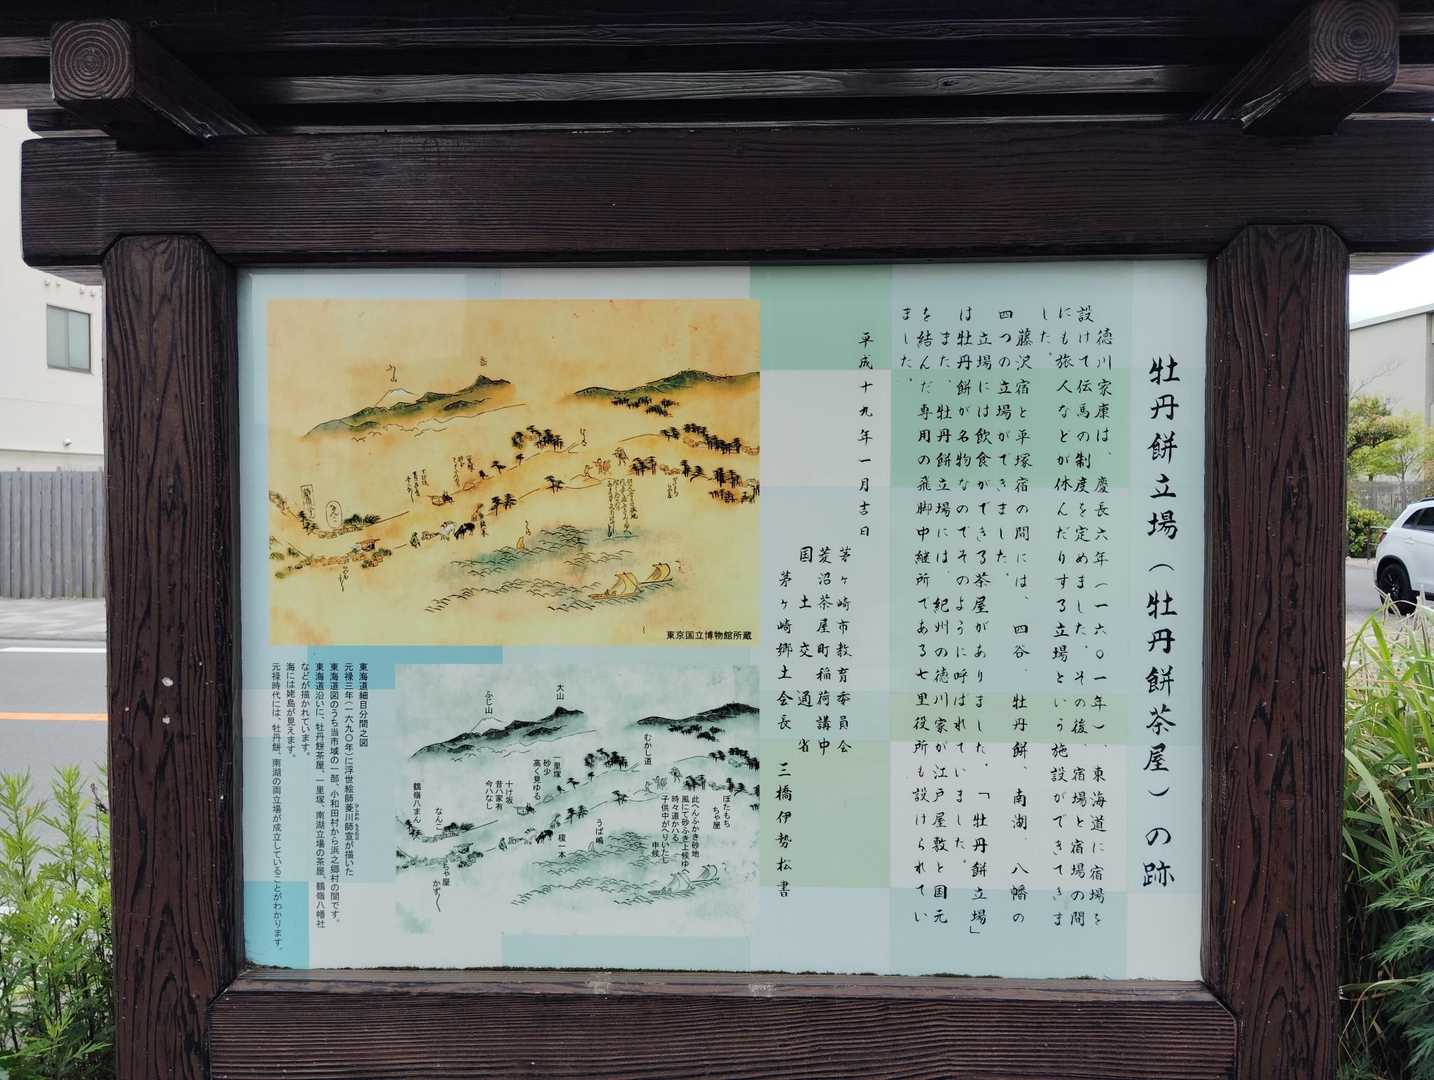 牡丹餅立場（牡丹餅茶屋）の跡
徳川家康は、慶長六年（一六〇一年）、東海道に宿場を
設けて伝馬の制度を定めました。その後、宿場と宿場の間
にも旅人などが休んだりする立場という施設ができてきま
した。
藤沢宿と平塚宿の間には、四谷、牡丹餅、南湖、八幡の
四つの立場ができました。
立場には飲食ができる茶屋がありました。「牡丹餅立場」
は牡丹餅が名物なのでそのように呼ばれていました。
また、牡丹餅立場には、紀州の徳川家が江戸屋敷と国元
を結んだ専用の飛脚中継所である七里役所も設けられてい
ました。
平成十九年一月吉日
茅ヶ崎市教育委員会
菱沼茶屋町稲荷講中
国土交通省
茅ヶ崎郷土会長 三橋伊勢松書
東京国立博物館所蔵
東海道細目分間之図
元禄三年（一六九〇年）に浮世絵師菱川師宣が描いた
東海道図のうち当市域の一部、小和田村から浜之郷村の間です。
東海道沿いに、牡丹餅茶屋、一里塚、南湖立場の茶屋、鶴嶺八幡社
などが描かれています。
海には姥島が見えます。
元禄時代には、牡丹餅、南湖の両立場が成立していることがわかります。
大山
ふじ山
むかし道
ぼたもち
ちゃ屋
此へんふかき砂地
風にて砂ふき上候ゆへ
時々道かハる
子供中がへりいたし
申候
うば嶋
榎一本
一里塚
砂少
高く見ゆる
十け坂
昔ハ家有
今ハなし
なんご
ちゃ屋
かず〱
鶴嶺八まん